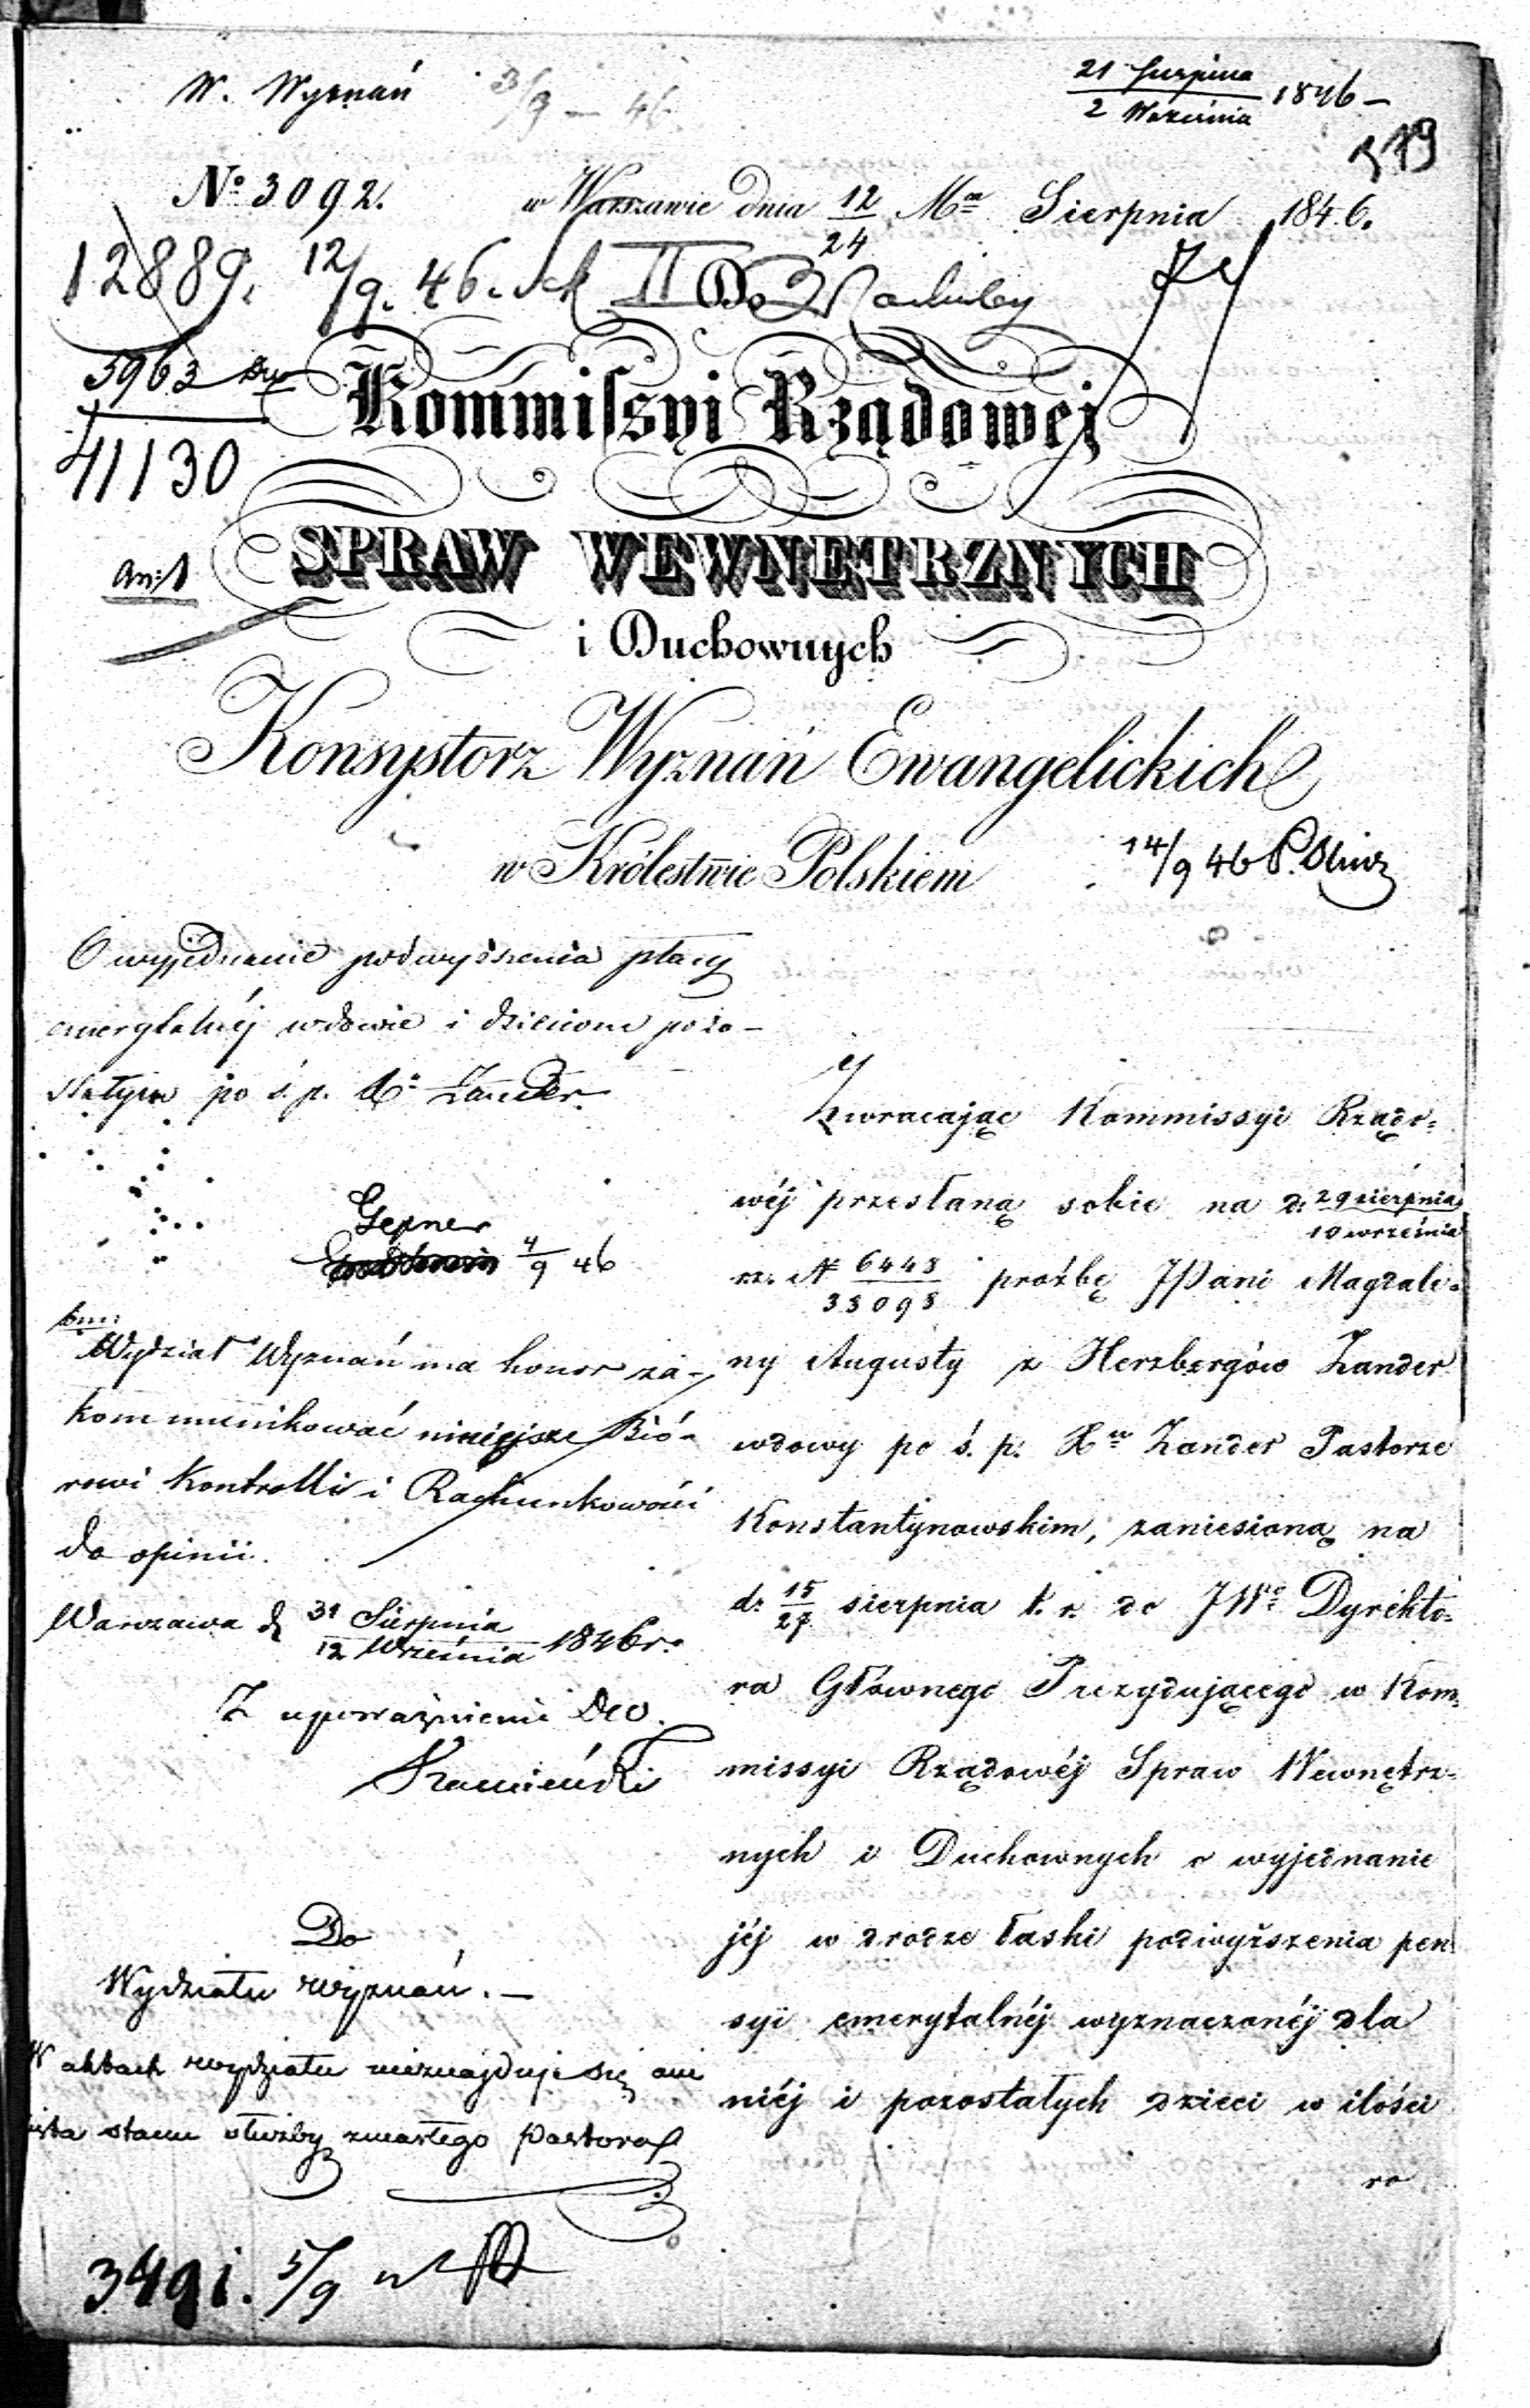 W. Wyznań 3/9 – 46
21 Sierpnia
2 Września 1846 –
119
№ 3092. w Warszawie dnia 12/24 Mca Sierpnia 1846.
12889. 12/9. 46. Sek II Do Rachuby
5963
41130
Kommissyi Rządowej
SPRAW WEWNĘTRZNYCH
i Duchownych
Konsystorz Wyznań Ewangelickich
w Królestwie Polskiem
14/9 46 P.
O wyjednanie podwyższenia płacy
emerytalnéj wdowie i dzieciom pozo–
stałym po ś. p. Xe Zander
Gepner
4/9 46
Wydział Wyznań ma honor za–
kommunikować niniejsze Bió–
rowi Kontrolli i Rachunkowości
do opinii.
Warszawa d. 31 Sierpnia
12 Września 1846 r.
Z upoważnienia
Kamieński
Do
Wydziału Wyznań. –
W aktach wydziału nieznajduje się ani
lista stanu służby zmarłego Pastora
3491. 5/9
Zwracając Kommissyi Rządo=
wéj przesłaną sobie na d. 29 sierpnia
10 września
rz. N 6443/33093 prośbę JPani Magdale=
ny Augusty z Herzbergów Zander
wdowy po ś. p. Xu Zander Pastorze
Konstantynowskim, zaniesioną na
d: 15/27 sierpnia t. r. do JWo Dyrekto=
ra Głównego Prezydującego w Kom=
missyi Rządowéj Spraw Wewnętrz=
nych i Duchownych o wyjednanie
jéj w drodze łaski podwyższenia pen
syi emerytalnéj wyznaczonéj dla
niéj i pozostałych dzieci w ilości
ro